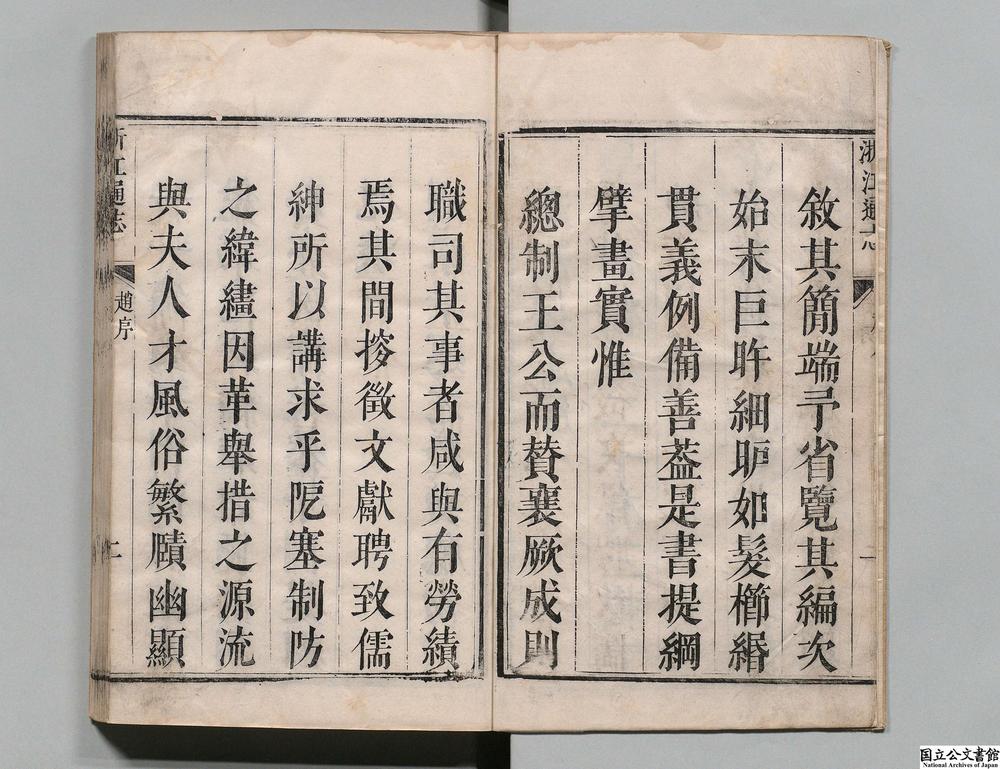 浙江通志
敘其簡端予省覽其編次
始末巨眸細眇如髮櫛緡
貫義例備善葢是書提綱
擘畫實惟
總制王公而贊襄厥成則
職司其事者咸與有勞績
焉其間搜徵文獻聘致儒
紳所以講求乎阨塞制防
之緯繣因革舉措之源流
與夫人才風俗繁賾幽顯
浙江通志
趙序
二
国立公文書館
National Archives of Japan